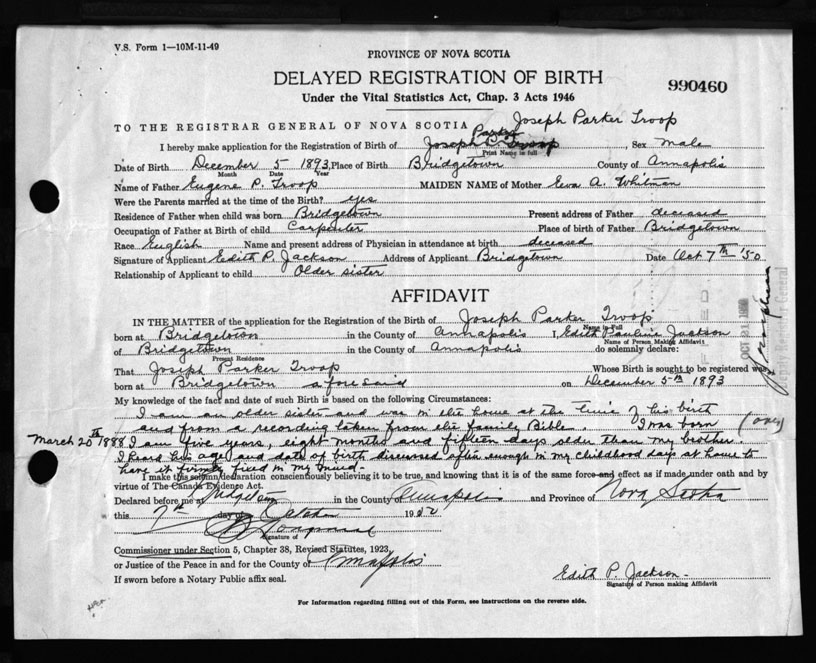 V.S. Form 1—10M-11-49
PROVINCE OF NOVA SCOTIA
DELAYED REGISTRATION OF BIRTH
990460
Under the Vital Statistics Act, Chap. 3 Acts 1946
Joseph Parker Troop
TO THE REGISTRAR GENERAL OF NOVA SCOTIA
Parker
I hereby make application for the Registration of Birth of Joseph P. Troop, Sex Male
Print Name in full
Date of Birth December 5 1893, Place of Birth Bridgetown County of Annapolis
Month Date Year
Name of Father Eugene P. Troop MAIDEN NAME of Mother Eva A. Whitman
Were the Parents married at the time of the Birth? yes
Residence of Father when child was born Bridgetown Present address of Father deceased
Occupation of Father at Birth of child Carpenter Place of birth of Father Bridgetown
Race English Name and present address of Physician in attendance at birth deceased
Signature of Applicant Edith P. Jackson Address of Applicant Bridgetown Date Oct 7th '50
Relationship of Applicant to child Older sister
AFFIDAVIT
IN THE MATTER of the application for the Registration of the Birth of Joseph Parker Troop
Name in Full
born at Bridgetown in the County of Annapolis I, Edith Pauline Jackson
Name of Person Making Affidavit
of Bridgetown in the County of Annapolis do solemnly declare:
Present Residence
That Joseph Parker Troop Whose Birth is sought to be registered was
born at Bridgetown aforesaid on December 5th 1893
My knowledge of the fact and date of such Birth is based on the following Circumstances:
I am an older sister and was in the home at the time of his birth
and from a recording taken from the family Bible. I was born (over)
March 20th 1888 I am five years, eight months and fifteen days older than my brother.
I heard his age and date of birth discussed often enough in my childhood days at home to
have it firmly fixed in my mind.
I make this solemn declaration conscientiously believing it to be true, and knowing that it is of the same force and effect as if made under oath and by
virtue of The Canada Evidence Act.
Declared before me at Bridgetown in the County Annapolis and Province of Nova Scotia
this 7th day of October 19
Signature of
Commissioner under Section 5, Chapter 38, Revised Statutes, 1923,
or Justice of the Peace in and for the County of Annapolis
If sworn before a Notary Public affix seal.
Edith P. Jackson
Signature of Person making Affidavit
For Information regarding filling out of this Form, see instructions on the reverse side.
OCT 21
Deputy Registrar General